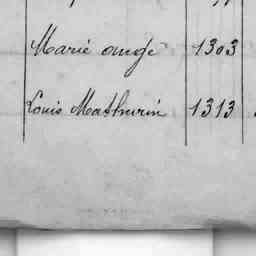 Marie ange 1303
Louis Mathurin 1313